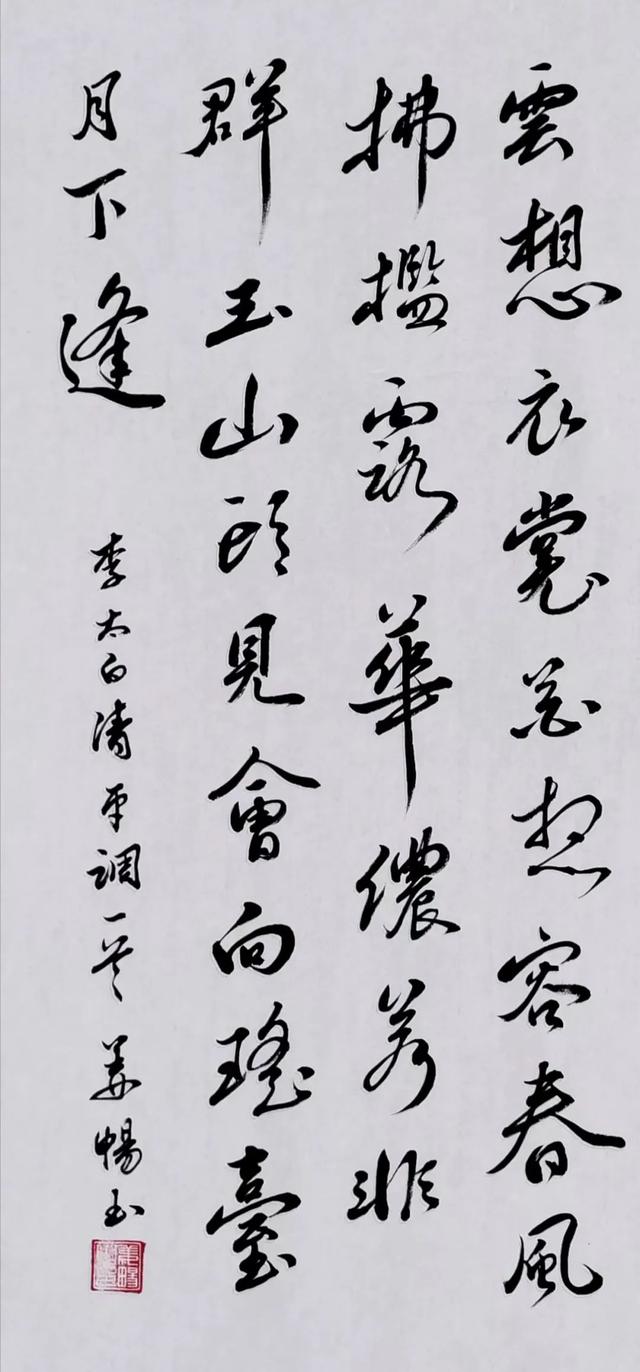 雲想衣裳花想容春風
拂檻露華儂若非
群玉山頭見會向瑤臺
月下逢
李太白清平調一首 姜暢玉